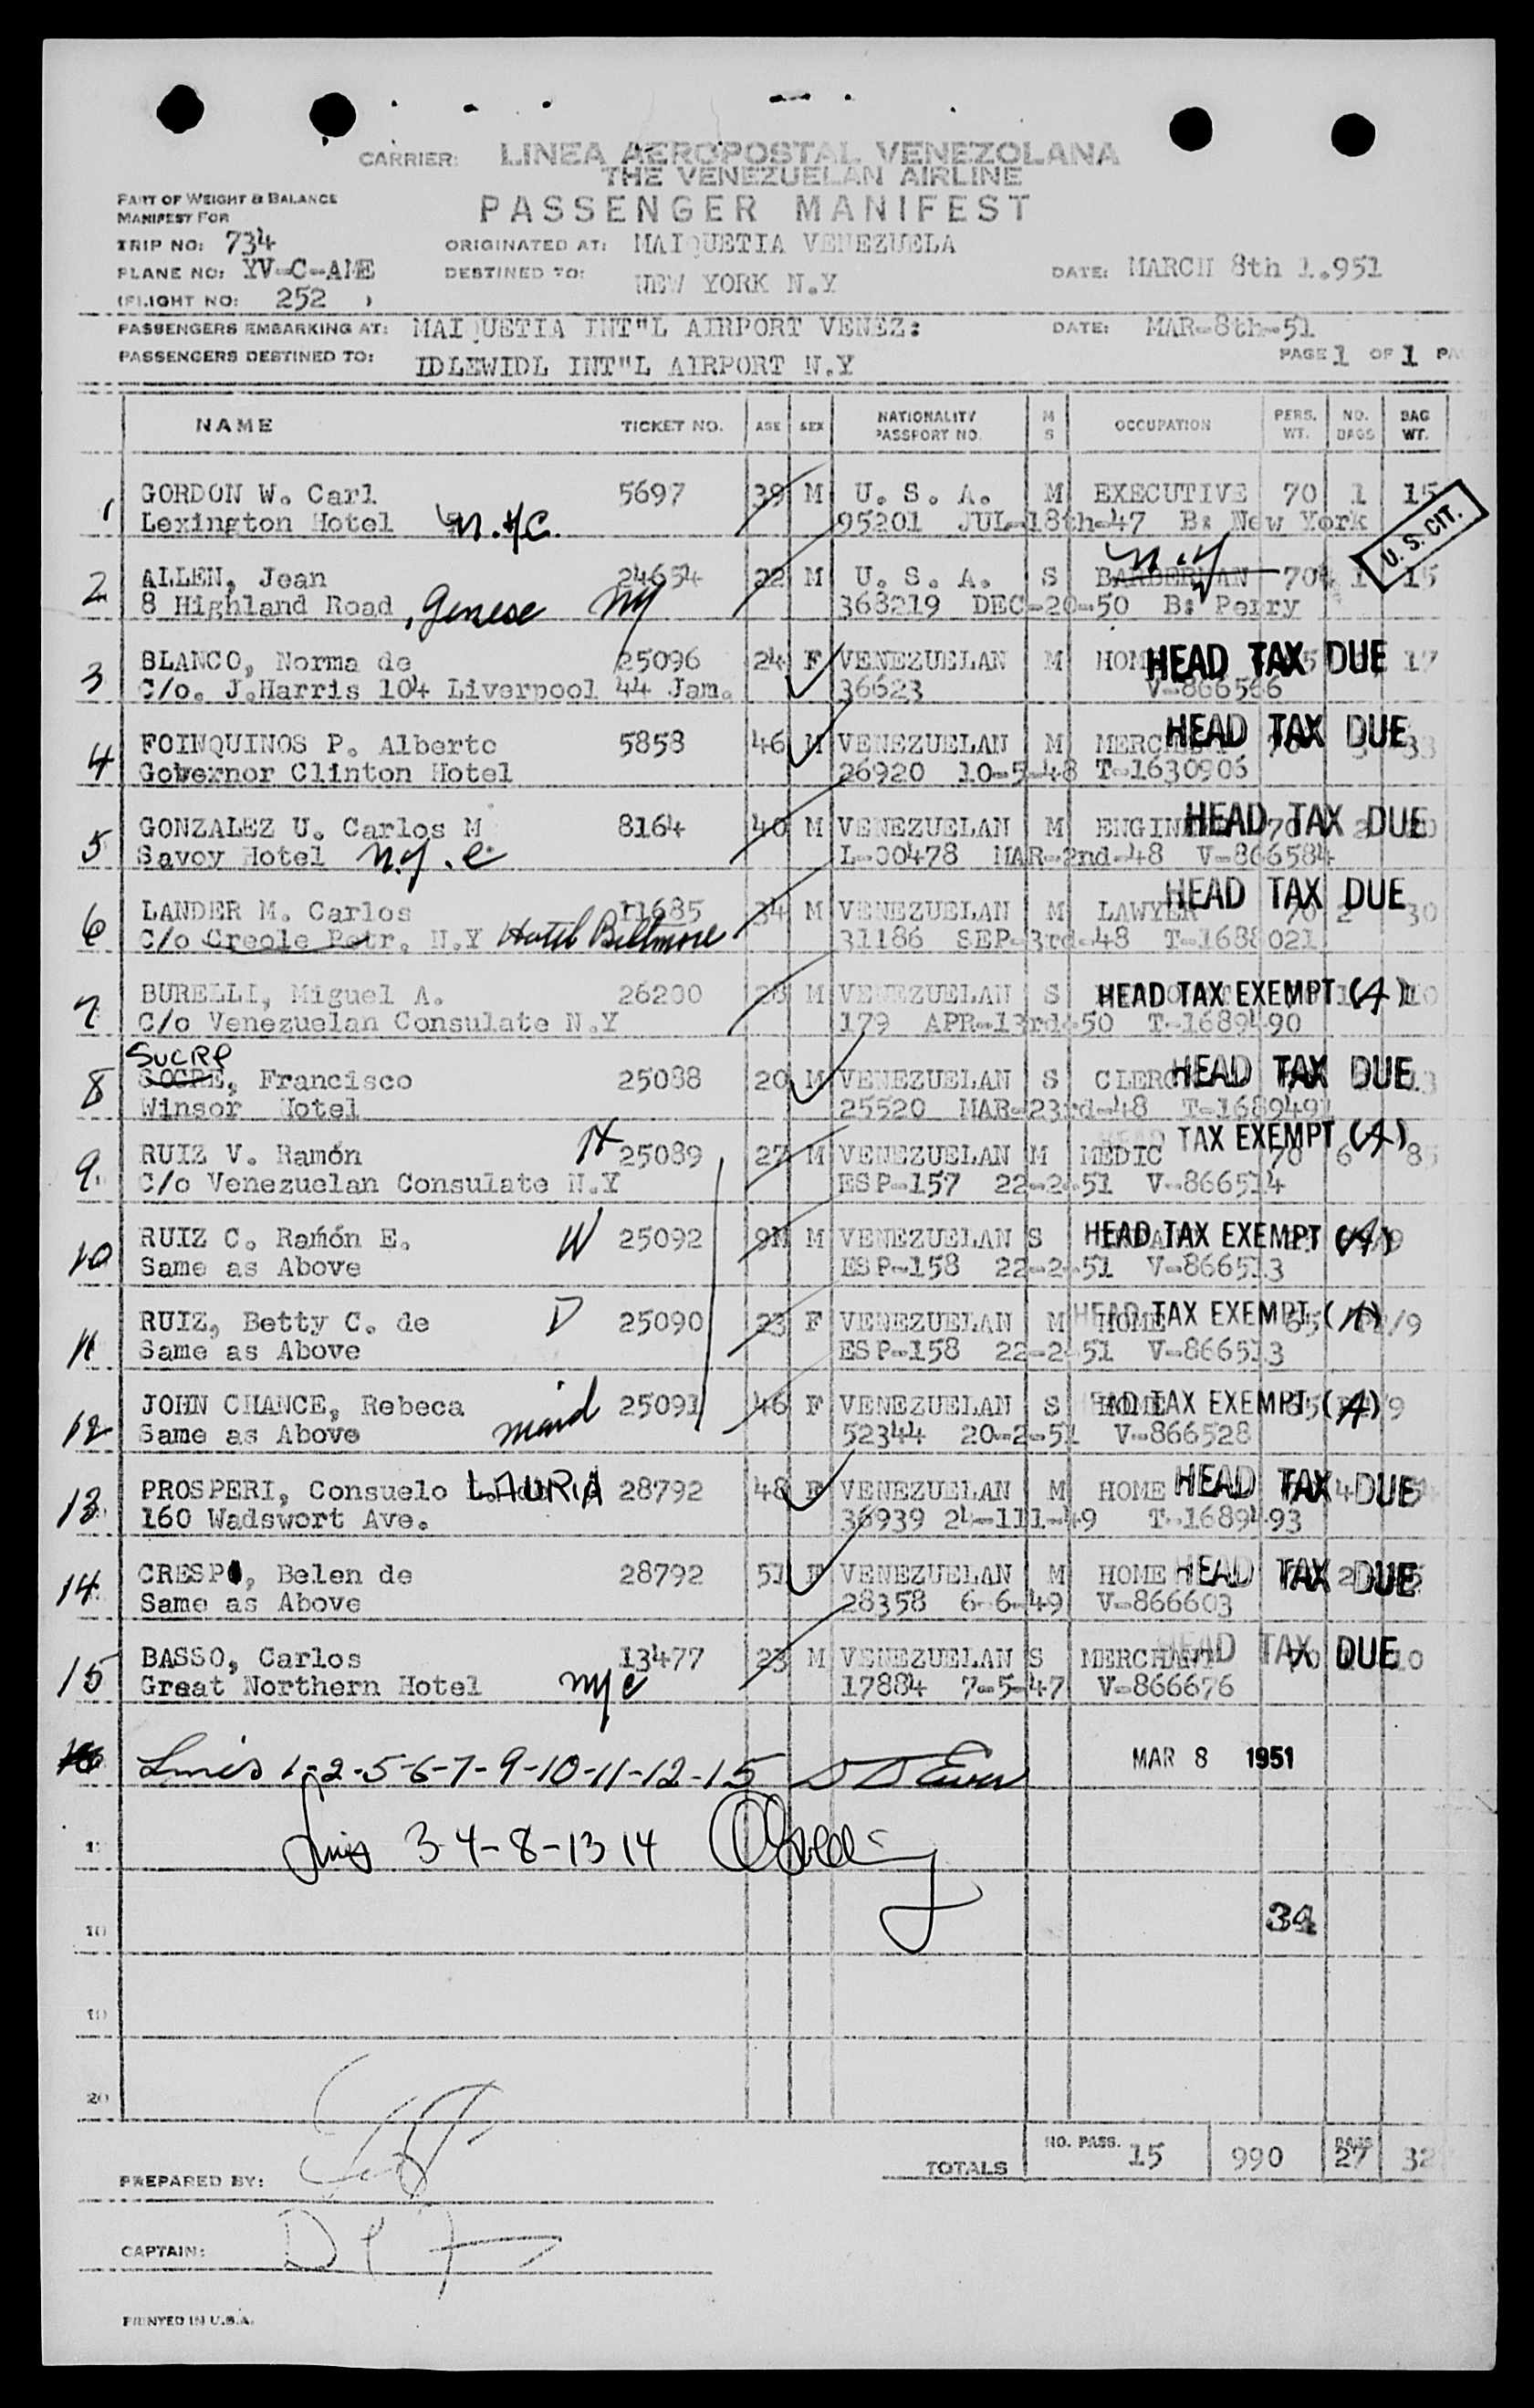 CARRIER: LINEA AEROPOSTAL VENEZOLANA
THE VENEZUELAN AIRLINE
PART OF WEIGHT & BALANCE
MANIFEST FOR
PASSENGER MANIFEST
TRIP NO: 734
ORIGINATED AT: MAIQUETIA VENEZUELA
PLANE NO: YV-C-AME
DESTINED TO: NEW YORK N.Y
DATE: MARCH 8th 1.951
(FLIGHT NO: 252 )
PASSENGERS EMBARKING AT: MAIQUETIA INT"L AIRPORT VENEZ:
DATE: MAR-8th-51
PASSENGERS DESTINED TO: IDLEWIDL INT"L AIRPORT N.Y
PAGE 1 OF 1 PA
NAME TICKET NO. AGE SEX NATIONALITY PASSPORT NO. M S OCCUPATION PERS. WT. NO. BAGS BAG WT.
1 GORDON W. Carl 5697 39 M U. S. A. M EXECUTIVE 70 1 15
Lexington Hotel N.Y.C. 95201 JUL-18th-47 B: New York
U. S. CIT.
2 ALLEN, Jean 24654 22 M U. S. A. S BARBERMAN N.Y 70 1 15
8 Highland Road, Genese NY 368219 DEC-20-50 B: Perry
3 BLANCO, Norma de 25096 24 F VENEZUELAN M HOM HEAD TAX DUE 17
C/o. J.Harris 104 Liverpool 44 Jam. 36623 V-866566
4 FOINQUINOS P. Alberto 5858 46 M VENEZUELAN M MERC HEAD TAX DUE 33
Governor Clinton Hotel 26920 10-5-48 T-1630906
5 GONZALEZ U. Carlos M 8164 40 M VENEZUELAN M ENGIN HEAD TAX DUE
Savoy Hotel N.Y.C. L-00478 MAR-2nd-48 V-866584
6 LANDER M. Carlos 11685 34 M VENEZUELAN M LAWYER HEAD TAX DUE 70 2 30
C/o Creole Petr, N.Y Hotel Biltmore 31186 SEP-3rd-48 T-1688021
7 BURELLI, Miguel A. 26200 M VENEZUELAN S HEAD TAX EXEMPT (A)
C/o Venezuelan Consulate N.Y 179 APR-13rd-50 T-1689490
SUCRE
8 SOCRE, Francisco 25088 20 M VENEZUELAN S CLERC HEAD TAX DUE
Winsor Hotel 25520 MAR-23rd-48 T-1689491
9. RUIZ V. Ramón H 25089 27 M VENEZUELAN M MEDIC HEAD TAX EXEMPT (A) 70 6 85
C/o Venezuelan Consulate N.Y ESP-157 22-2-51 V-866514
10 RUIZ C. Ramón E. W 25092 9M M VENEZUELAN S HEAD TAX EXEMPT (A)
Same as Above ESP-158 22-2-51 V-866513
11 RUIZ, Betty C. de D 25090 23 F VENEZUELAN M HOME HEAD TAX EXEMPT (A) /9
Same as Above ESP-158 22-2-51 V-866513
12 JOHN CHANCE, Rebeca maid 25091 46 F VENEZUELAN S HOME HEAD TAX EXEMPT (A) /9
Same as Above 52344 20-2-51 V-866528
13 PROSPERI, Consuelo LAURIA 28792 48 F VENEZUELAN M HOME HEAD TAX DUE
160 Wadswort Ave. 36939 24-111-49 T-1689493
14 CRESPO, Belen de 28792 51 F VENEZUELAN M HOME HEAD TAX DUE
Same as Above 28358 6-6-49 V-866603
15 BASSO, Carlos 13477 23 M VENEZUELAN S MERCHANT HEAD TAX DUE 10
Great Northern Hotel NYC 17884 7-5-47 V-866676
16 Lines 1-2-5-6-7-9-10-11-12-15
MAR 8 1951
Lines 3-4-8-13 14
34
20
TOTALS NO. PASS. 15 990 BAGS 27 32
PREPARED BY:
CAPTAIN:
PRINTED IN U.S.A.